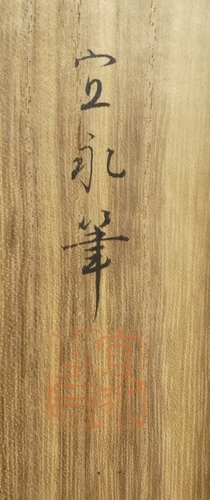 宜永筆